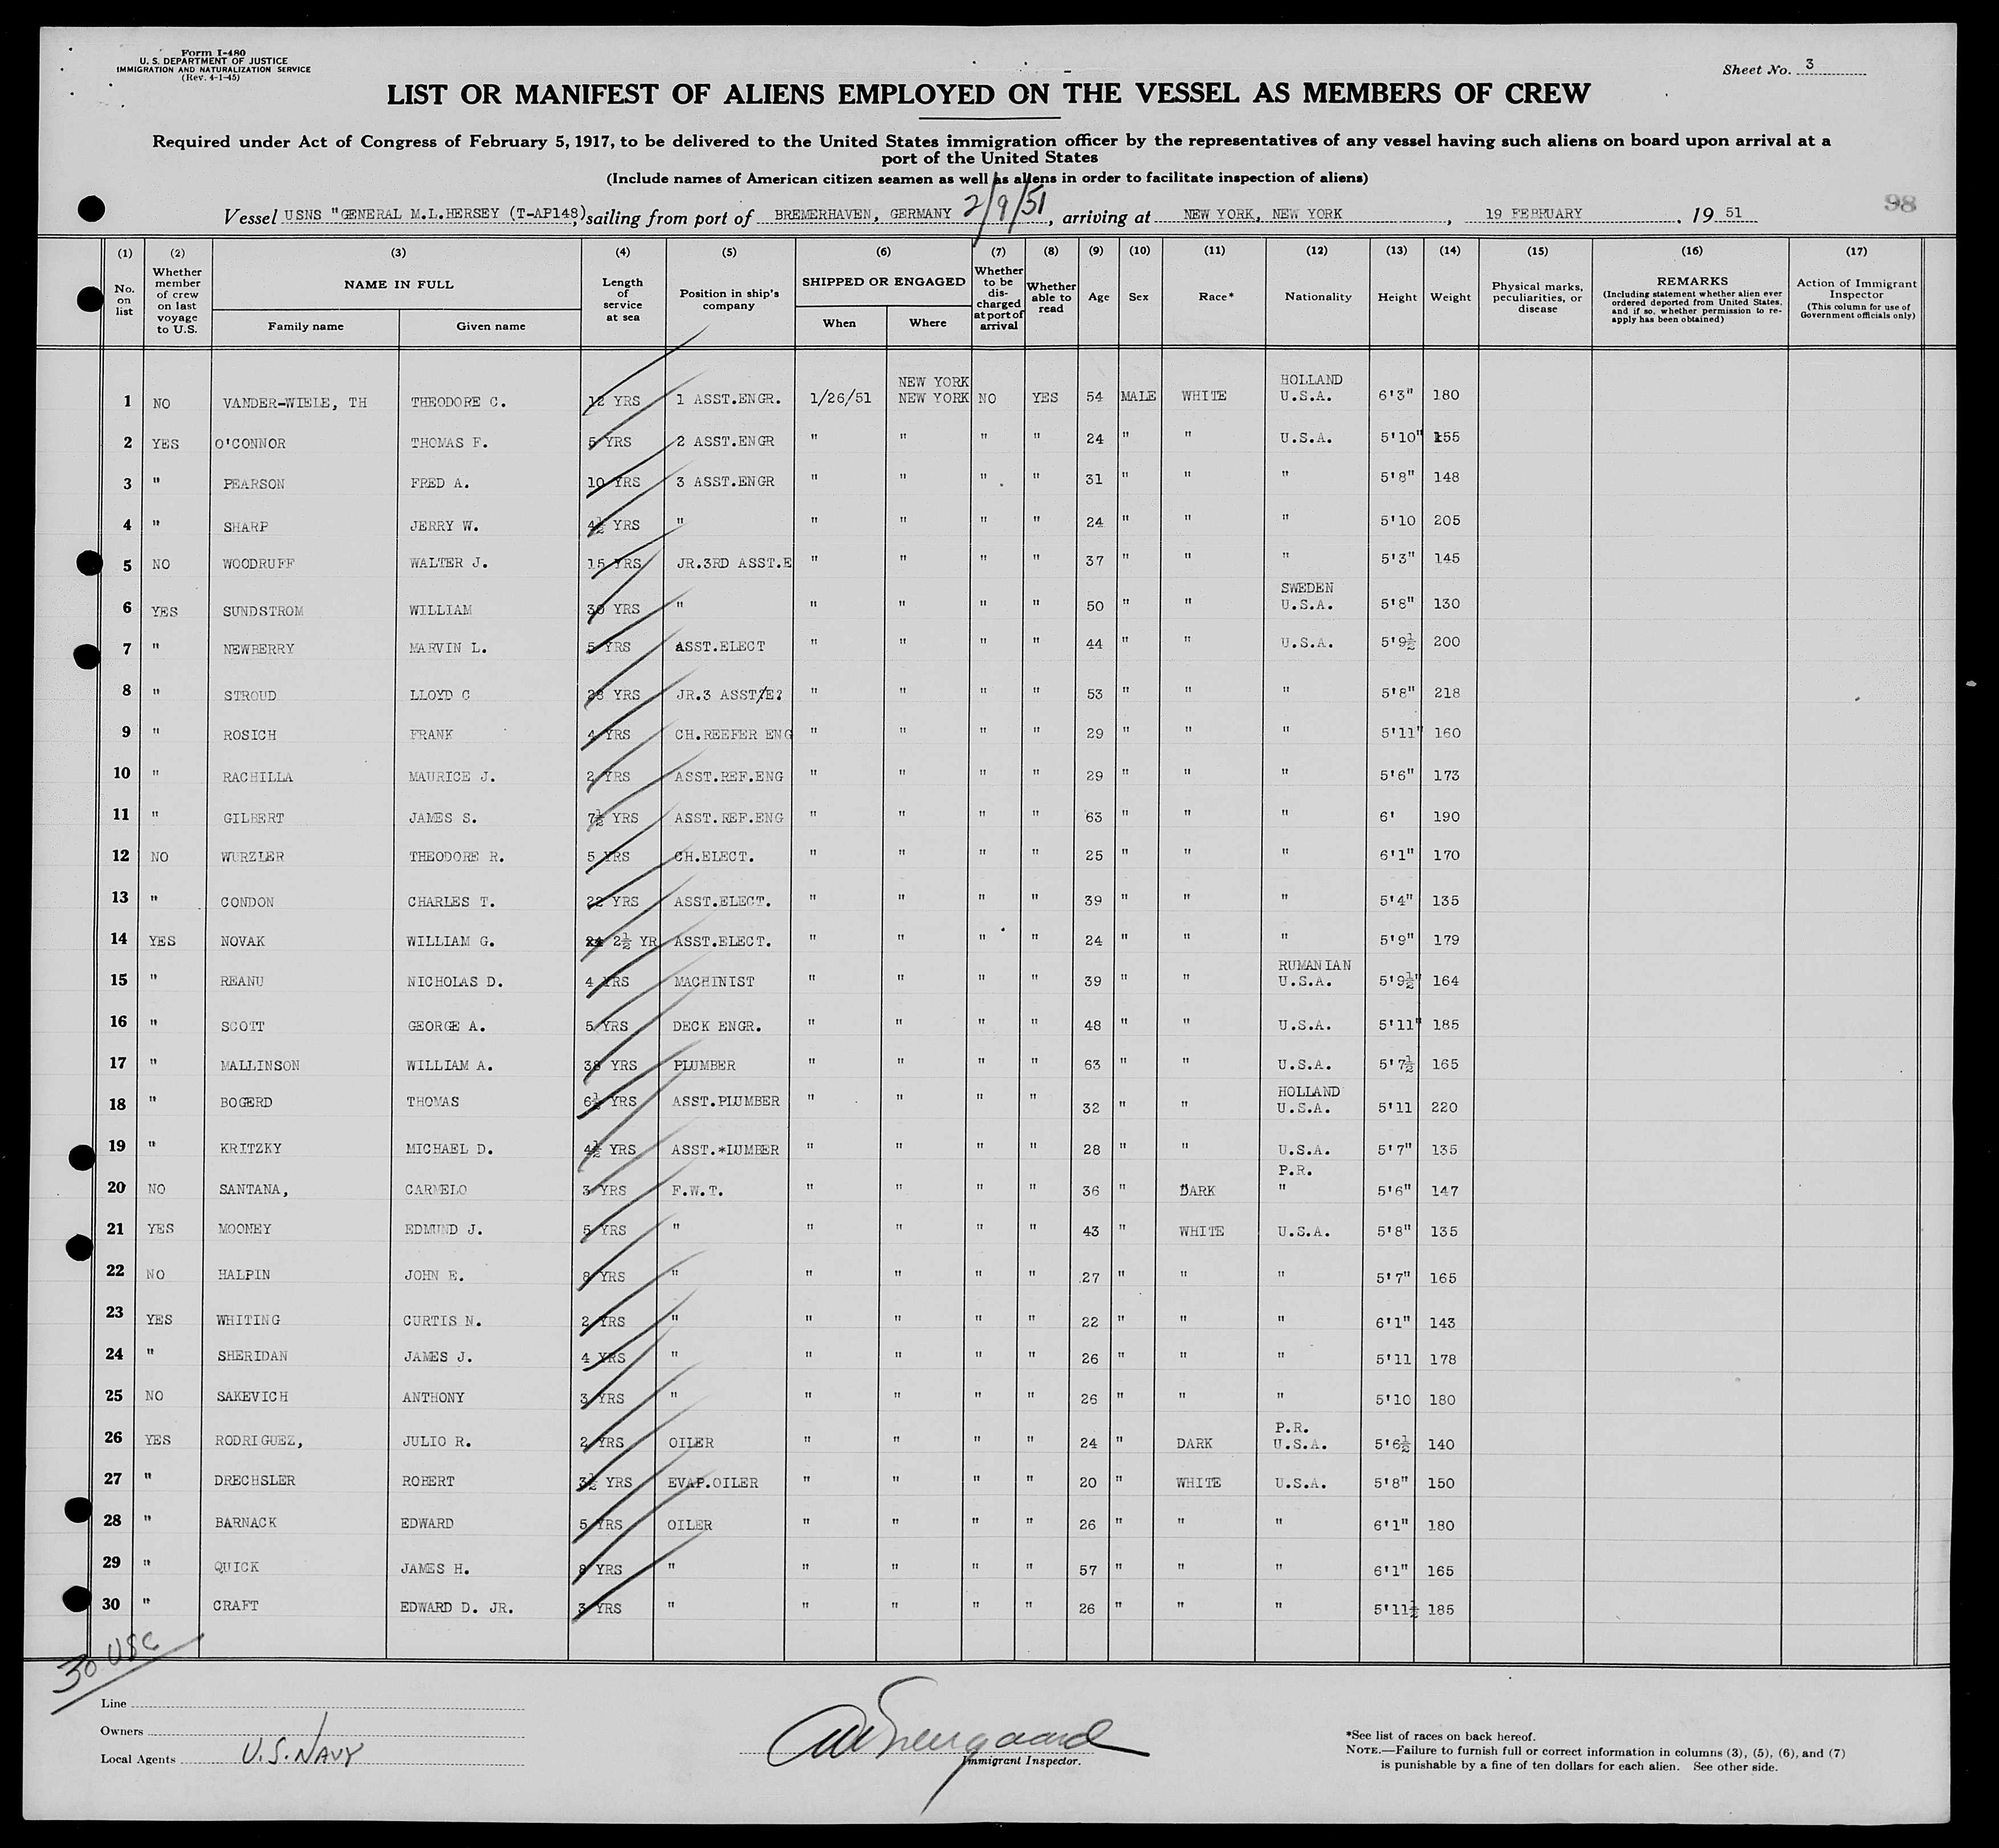 Form I-480
U. S. DEPARTMENT OF JUSTICE
IMMIGRATION AND NATURALIZATION SERVICE
(Rev. 4-1-45)
Sheet No. 3
LIST OR MANIFEST OF ALIENS EMPLOYED ON THE VESSEL AS MEMBERS OF CREW
Required under Act of Congress of February 5, 1917, to be delivered to the United States immigration officer by the representatives of any vessel having such aliens on board upon arrival at a
port of the United States
(Include names of American citizen seamen as well as aliens in order to facilitate inspection of aliens)
Vessel USNS "GENERAL M.L.HERSEY (T-AP148), sailing from port of BREMERHAVEN, GERMANY 2/9/51, arriving at NEW YORK, NEW YORK, 19 FEBRUARY, 19 51
98
(1) No. on list (2) Whether member of crew on last voyage to U.S. (3) NAME IN FULL Family name Given name (4) Length of service at sea (5) Position in ship's company (6) SHIPPED OR ENGAGED When Where (7) Whether to be discharged at port of arrival (8) Whether able to read (9) Age (10) Sex (11) Race* (12) Nationality (13) Height (14) Weight (15) Physical marks, peculiarities, or disease (16) REMARKS (Including statement whether alien ever ordered deported from United States, and if so, whether permission to re-apply has been obtained) (17) Action of Immigrant Inspector (This column for use of Government officials only)
NEW YORK HOLLAND
1 NO VANDER-WIELE, TH THEODORE C. 12 YRS 1 ASST.ENGR. 1/26/51 NEW YORK NO YES 54 MALE WHITE U.S.A. 6'3" 180
2 YES O'CONNOR THOMAS F. 5 YRS 2 ASST.ENGR " " " " 24 " " U.S.A. 5'10" 155
3 " PEARSON FRED A. 10 YRS 3 ASST.ENGR " " " " 31 " " " 5'8" 148
4 " SHARP JERRY W. 4½ YRS " " " " " 24 " " " 5'10 205
5 NO WOODRUFF WALTER J. 15 YRS JR.3RD ASST.E " " " " 37 " " " 5'3" 145
SWEDEN
6 YES SUNDSTROM WILLIAM 30 YRS " " " " " 50 " " U.S.A. 5'8" 130
7 " NEWBERRY MARVIN L. 5 YRS ASST.ELECT " " " " 44 " " U.S.A. 5'9½ 200
8 " STROUD LLOYD C 28 YRS JR.3 ASST/E? " " " " 53 " " " 5'8" 218
9 " ROSICH FRANK 4 YRS CH.REEFER ENG " " " " 29 " " " 5'11" 160
10 " RACHILLA MAURICE J. 2 YRS ASST.REF.ENG " " " " 29 " " " 5'6" 173
11 " GILBERT JAMES S. 7½ YRS ASST.REF.ENG " " " " 63 " " " 6' 190
12 NO WURZLER THEODORE R. 5 YRS CH.ELECT. " " " " 25 " " " 6'1" 170
13 " CONDON CHARLES T. 22 YRS ASST.ELECT. " " " " 39 " " " 5'4" 135
14 YES NOVAK WILLIAM G. 2½ YR ASST.ELECT. " " " " 24 " " " 5'9" 179
RUMANIAN
15 " REANU NICHOLAS D. 4 YRS MACHINIST " " " " 39 " " U.S.A. 5'9½" 164
16 " SCOTT GEORGE A. 5 YRS DECK ENGR. " " " " 48 " " U.S.A. 5'11" 185
17 " MALLINSON WILLIAM A. 38 YRS PLUMBER " " " " 63 " " U.S.A. 5'7½ 165
HOLLAND
18 " BOGERD THOMAS 6½ YRS ASST.PLUMBER " " " " 32 " " U.S.A. 5'11 220
19 " KRITZKY MICHAEL D. 4½ YRS ASST.*LUMBER " " " " 28 " " U.S.A. 5'7" 135
P.R.
20 NO SANTANA, CARMELO 3 YRS F.W.T. " " " " 36 " DARK " 5'6" 147
21 YES MOONEY EDMUND J. 5 YRS " " " " " 43 " WHITE U.S.A. 5'8" 135
22 NO HALPIN JOHN E. 8 YRS " " " " " 27 " " " 5'7" 165
23 YES WHITING CURTIS N. 2 YRS " " " " " 22 " " " 6'1" 143
24 " SHERIDAN JAMES J. 4 YRS " " " " " 26 " " " 5'11 178
25 NO SAKEVICH ANTHONY 3 YRS " " " " " 26 " " " 5'10 180
P.R.
26 YES RODRIGUEZ, JULIO R. 2 YRS OILER " " " " 24 " DARK U.S.A. 5'6½ 140
27 " DRECHSLER ROBERT 3½ YRS EVAP.OILER " " " " 20 " WHITE U.S.A. 5'8" 150
28 " BARNACK EDWARD 5 YRS OILER " " " " 26 " " " 6'1" 180
29 " QUICK JAMES H. 8 YRS " " " " " 57 " " " 6'1" 165
30 " CRAFT EDWARD D. JR. 3 YRS " " " " " 26 " " " 5'11½ 185
30 USC
Line
Owners
Local Agents U.S. NAVY
Immigrant Inspector.
*See list of races on back hereof.
NOTE.—Failure to furnish full or correct information in columns (3), (5), (6), and (7)
is punishable by a fine of ten dollars for each alien. See other side.